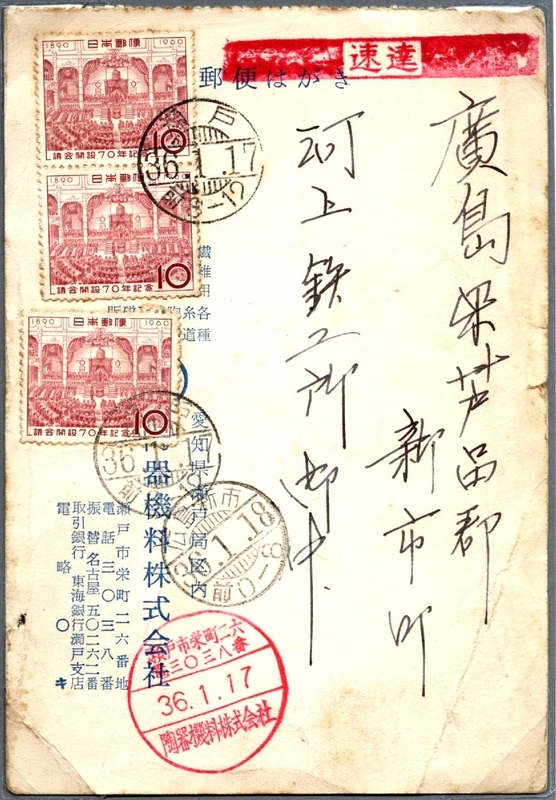 速達
郵便はがき
廣島県芦品郡
新市町
河上鉄工所 御中
1890 日本郵便 1960
10
議会開設70年記念
1890 日本郵便 1960
10
議会開設70年記念
1890 日本郵便 1960
10
議会開設70年記念
戸
36.1.17
前8-12
36.1
前
新市
36.1.18
前0-8
繊維
用
各種
糸道
愛知県瀬戸局区内
器機料株式会社
瀬戸市栄町二六番地
電話三〇三八番
振替名古屋五〇六二番
取引銀行 東海銀行瀬戸支店
電略 〇キ
瀬戸市栄町二六
三〇三八番
36.1.17
陶器機料株式会社